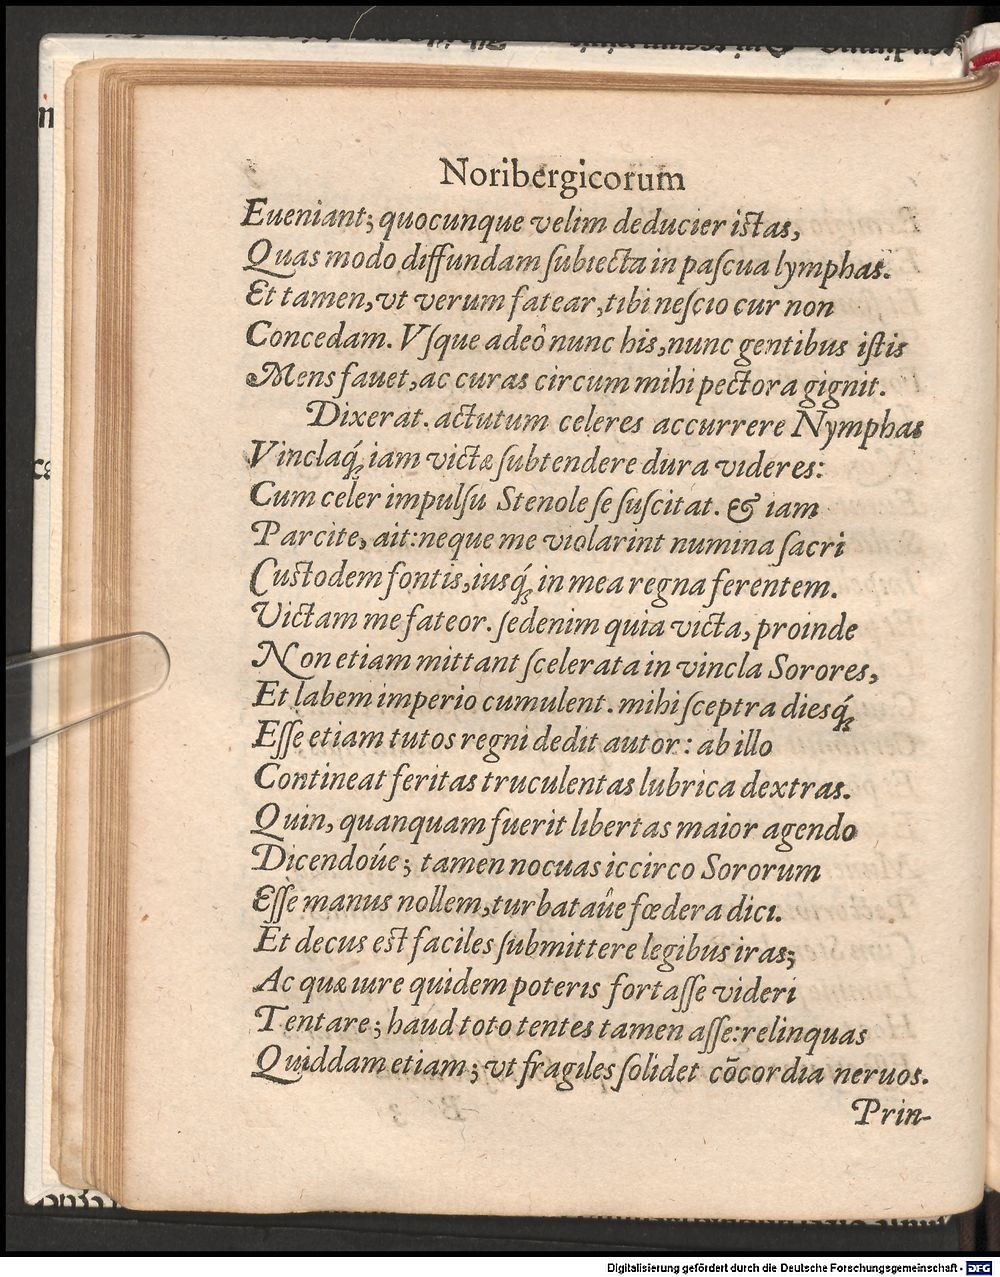 Noribergicorum
Eueniant; quocunque velim deducier istas,
Quas modo diffundam ſubiecta in paſcua lymphas.
Et tamen, vt verum fatear, tibi neſcio cur non
Concedam. Vſque adeò nunc his, nunc gentibus iſtis
Mens fauet, ac curas circum mihi pectora gignit.
Dixerat. actutum celeres accurrere Nymphas
Vinclaq́ʒ iam victæ ſubtendere dura videres:
Cum celer impulſu Stenole ſe ſuſcitat. & iam
Parcite, ait: neque me violarint numina ſacri
Custodem fontis, iusq́ʒ in mea regna ferentem.
Victam me fateor. ſedenim quia victa, proinde
Non etiam mittant ſcelerata in vincla Sorores,
Et labem imperio cumulent. mihi ſceptra diesq́ʒ
Eſſe etiam tutos regni dedit autor: ab illo
Contineat feritas truculentas lubrica dextras.
Quin, quanquam fuerit libertas maior agendo
Dicendoúe; tamen nocuas iccirco Sororum
Eſſe manus nollem, turbataûe fœdera dici.
Et decus est faciles ſubmittere legibus iras;
Ac quæ iure quidem poteris fortaſſe videri
Tentare; haud toto tentes tamen aſſe: relinquas
Quiddam etiam; vt fragiles ſolidet cōcordia neruos.
Prin-
Digitalisierung gefördert durch die Deutsche Forschungsgemeinschaft - DFG